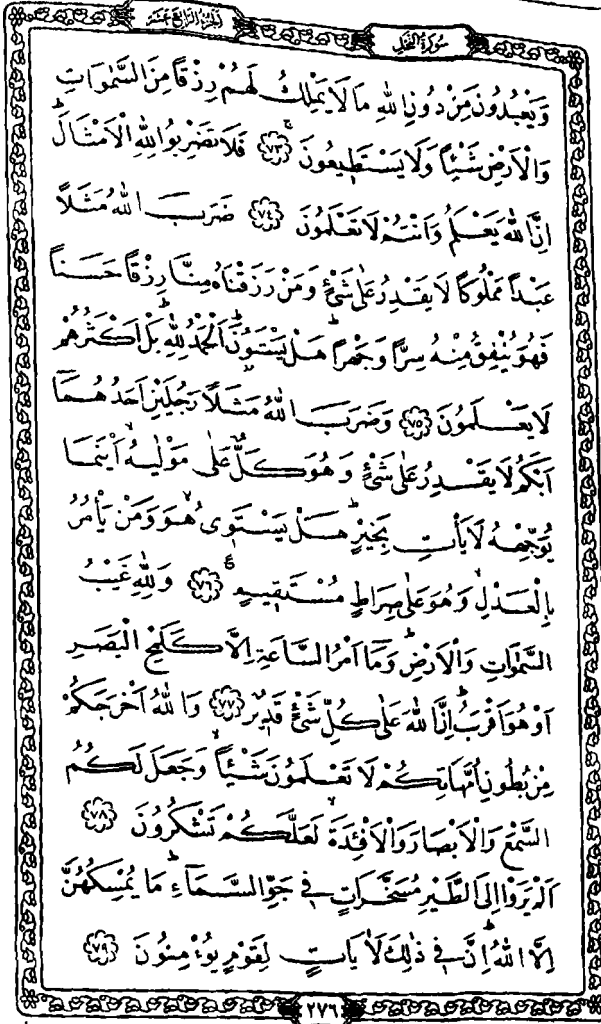 الجزء الرابع عشر
سورة النحل
وَيَعْبُدُونَ مِنْ دُونِ اللّٰهِ مَا لَا يَمْلِكُ لَهُمْ رِزْقًا مِنَ السَّمٰوَاتِ
وَالْاَرْضِ شَيْئًا وَلَا يَسْتَطٖيعُونَ ۚ ﴿٧٣﴾ فَلَا تَضْرِبُوا لِلّٰهِ الْاَمْثَالَۜ
اِنَّ اللّٰهَ يَعْلَمُ وَاَنْتُمْ لَا تَعْلَمُونَ ﴿٧٤﴾ ضَرَبَ اللّٰهُ مَثَلًا
عَبْدًا مَمْلُوكًا لَا يَقْدِرُ عَلٰى شَيْءٍ وَمَنْ رَزَقْنَاهُ مِنَّا رِزْقًا حَسَنًا
فَهُوَ يُنْفِقُ مِنْهُ سِرًّا وَجَهْرًاۜ هَلْ يَسْتَوُ۫نَۜ اَلْحَمْدُ لِلّٰهِۜ بَلْ اَكْثَرُهُمْ
لَا يَعْلَمُونَ ﴿٧٥﴾ وَضَرَبَ اللّٰهُ مَثَلًا رَجُلَيْنِ اَحَدُهُمَٓا
اَبْكَمُ لَا يَقْدِرُ عَلٰى شَيْءٍ وَهُوَ كَلٌّ عَلٰى مَوْلٰيهُۙ اَيْنَمَا
يُوَجِّهْهُ لَا يَأْتِ بِخَيْرٍۜ هَلْ يَسْتَوٖي هُوَۙ وَمَنْ يَأْمُرُ
بِالْعَدْلِۙ وَهُوَ عَلٰى صِرَاطٍ مُسْتَقٖيمٍ ۟ ﴿٧٦﴾ وَلِلّٰهِ غَيْبُ
السَّمٰوَاتِ وَالْاَرْضِۜ وَمَٓا اَمْرُ السَّاعَةِ اِلَّا كَلَمْحِ الْبَصَرِ
اَوْ هُوَ اَقْرَبُۜ اِنَّ اللّٰهَ عَلٰى كُلِّ شَيْءٍ قَدٖيرٌ ﴿٧٧﴾ وَاللّٰهُ اَخْرَجَكُمْ
مِنْ بُطُونِ اُمَّهَاتِكُمْ لَا تَعْلَمُونَ شَيْئًاۙ وَجَعَلَ لَكُمُ
السَّمْعَ وَالْاَبْصَارَ وَالْاَفْـِٔدَةَۙ لَعَلَّكُمْ تَشْكُرُونَ ﴿٧٨﴾
اَلَمْ يَرَوْا اِلَى الطَّيْرِ مُسَخَّرَاتٍ فٖي جَوِّ السَّمَٓاءِۜ مَا يُمْسِكُهُنَّ
اِلَّا اللّٰهُۜ اِنَّ فٖي ذٰلِكَ لَاٰيَاتٍ لِقَوْمٍ يُؤْمِنُونَ ﴿٧٩﴾
٢٧٦